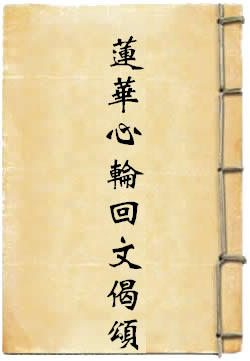 蓮華心輪回文偈頌